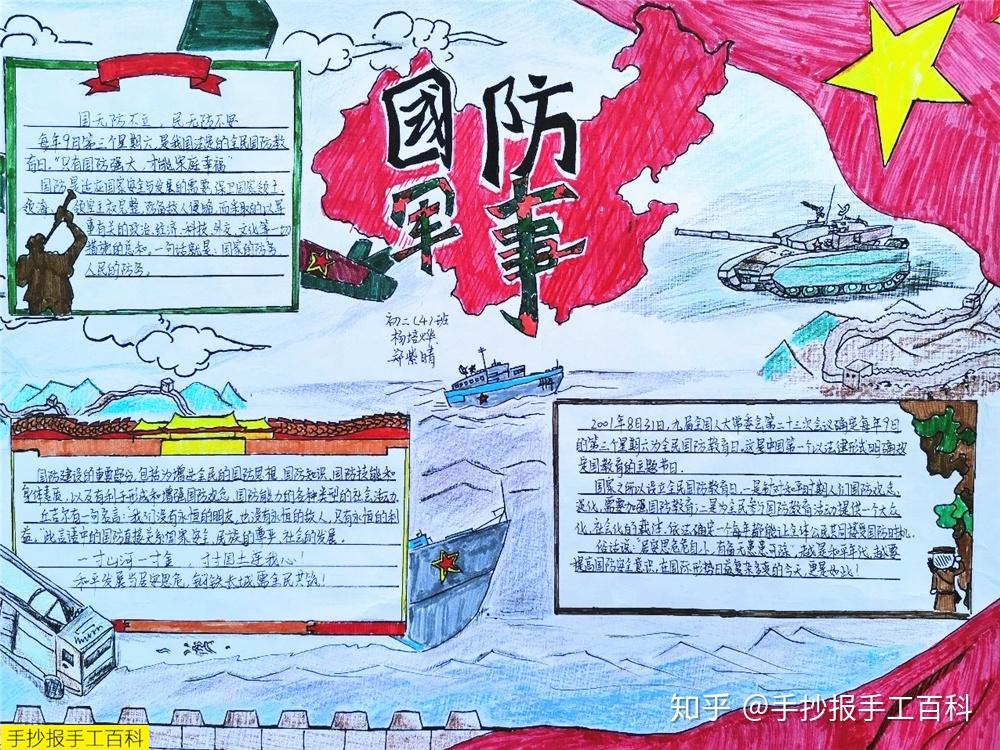 國防
军事
初二(4)班
杨培烨
郑紫晴
国无防不立，民无防不安
每年9月第三个星期六，是我国法定的全民国防教
育日。"只有国防强大，才能家庭幸福"
国防是适应国家安全与发展的需要，保卫国家领土、
领海、领空主权完整，防备敌人侵略，而采取的以军
事有关的政治、经济、科技、外交、文化等一切
措施的总和。一句话就是：国家的防务
人民的防务。
国防建设的重要部分，包括为增进全民的国防思想、国防知识、国防技能和
身体素质，以及有利于形成和增强国防观念、国防能力的各种类型的社会活动
丘吉尔有一句名言："我们没有永恒的朋友，也没有永恒的敌人，只有永恒的利
益。此言语中的国防直接关系到国家安全，民族的尊严，社会的发展。
一寸山河一寸金，寸寸国土连我心！
和平发展当居安思危，钢铁长城需全民共铸！
2001年8月31日，九届全国人大常委会第二十三次会议确定每年9月
的第三个星期六为全民国防教育日。这是中国第一个以法律形式明确接
受国教育的主题节日。
国家之所以设立全民国防教育日，一是针对和平时期人们国防观念
淡化，需要加强国防教育；二是为全民参与国防教育活动提供一个大众
化、社会化的载体，依法确定一个每年都能让全体公民共同接受国防的
俗话说"居安思危 有备无患 越是和平年代，越要
提高国防安全意识，在国际形势日益复杂多变的今天，更是如此！
知乎 @手抄报手工百科
手抄报手工百科